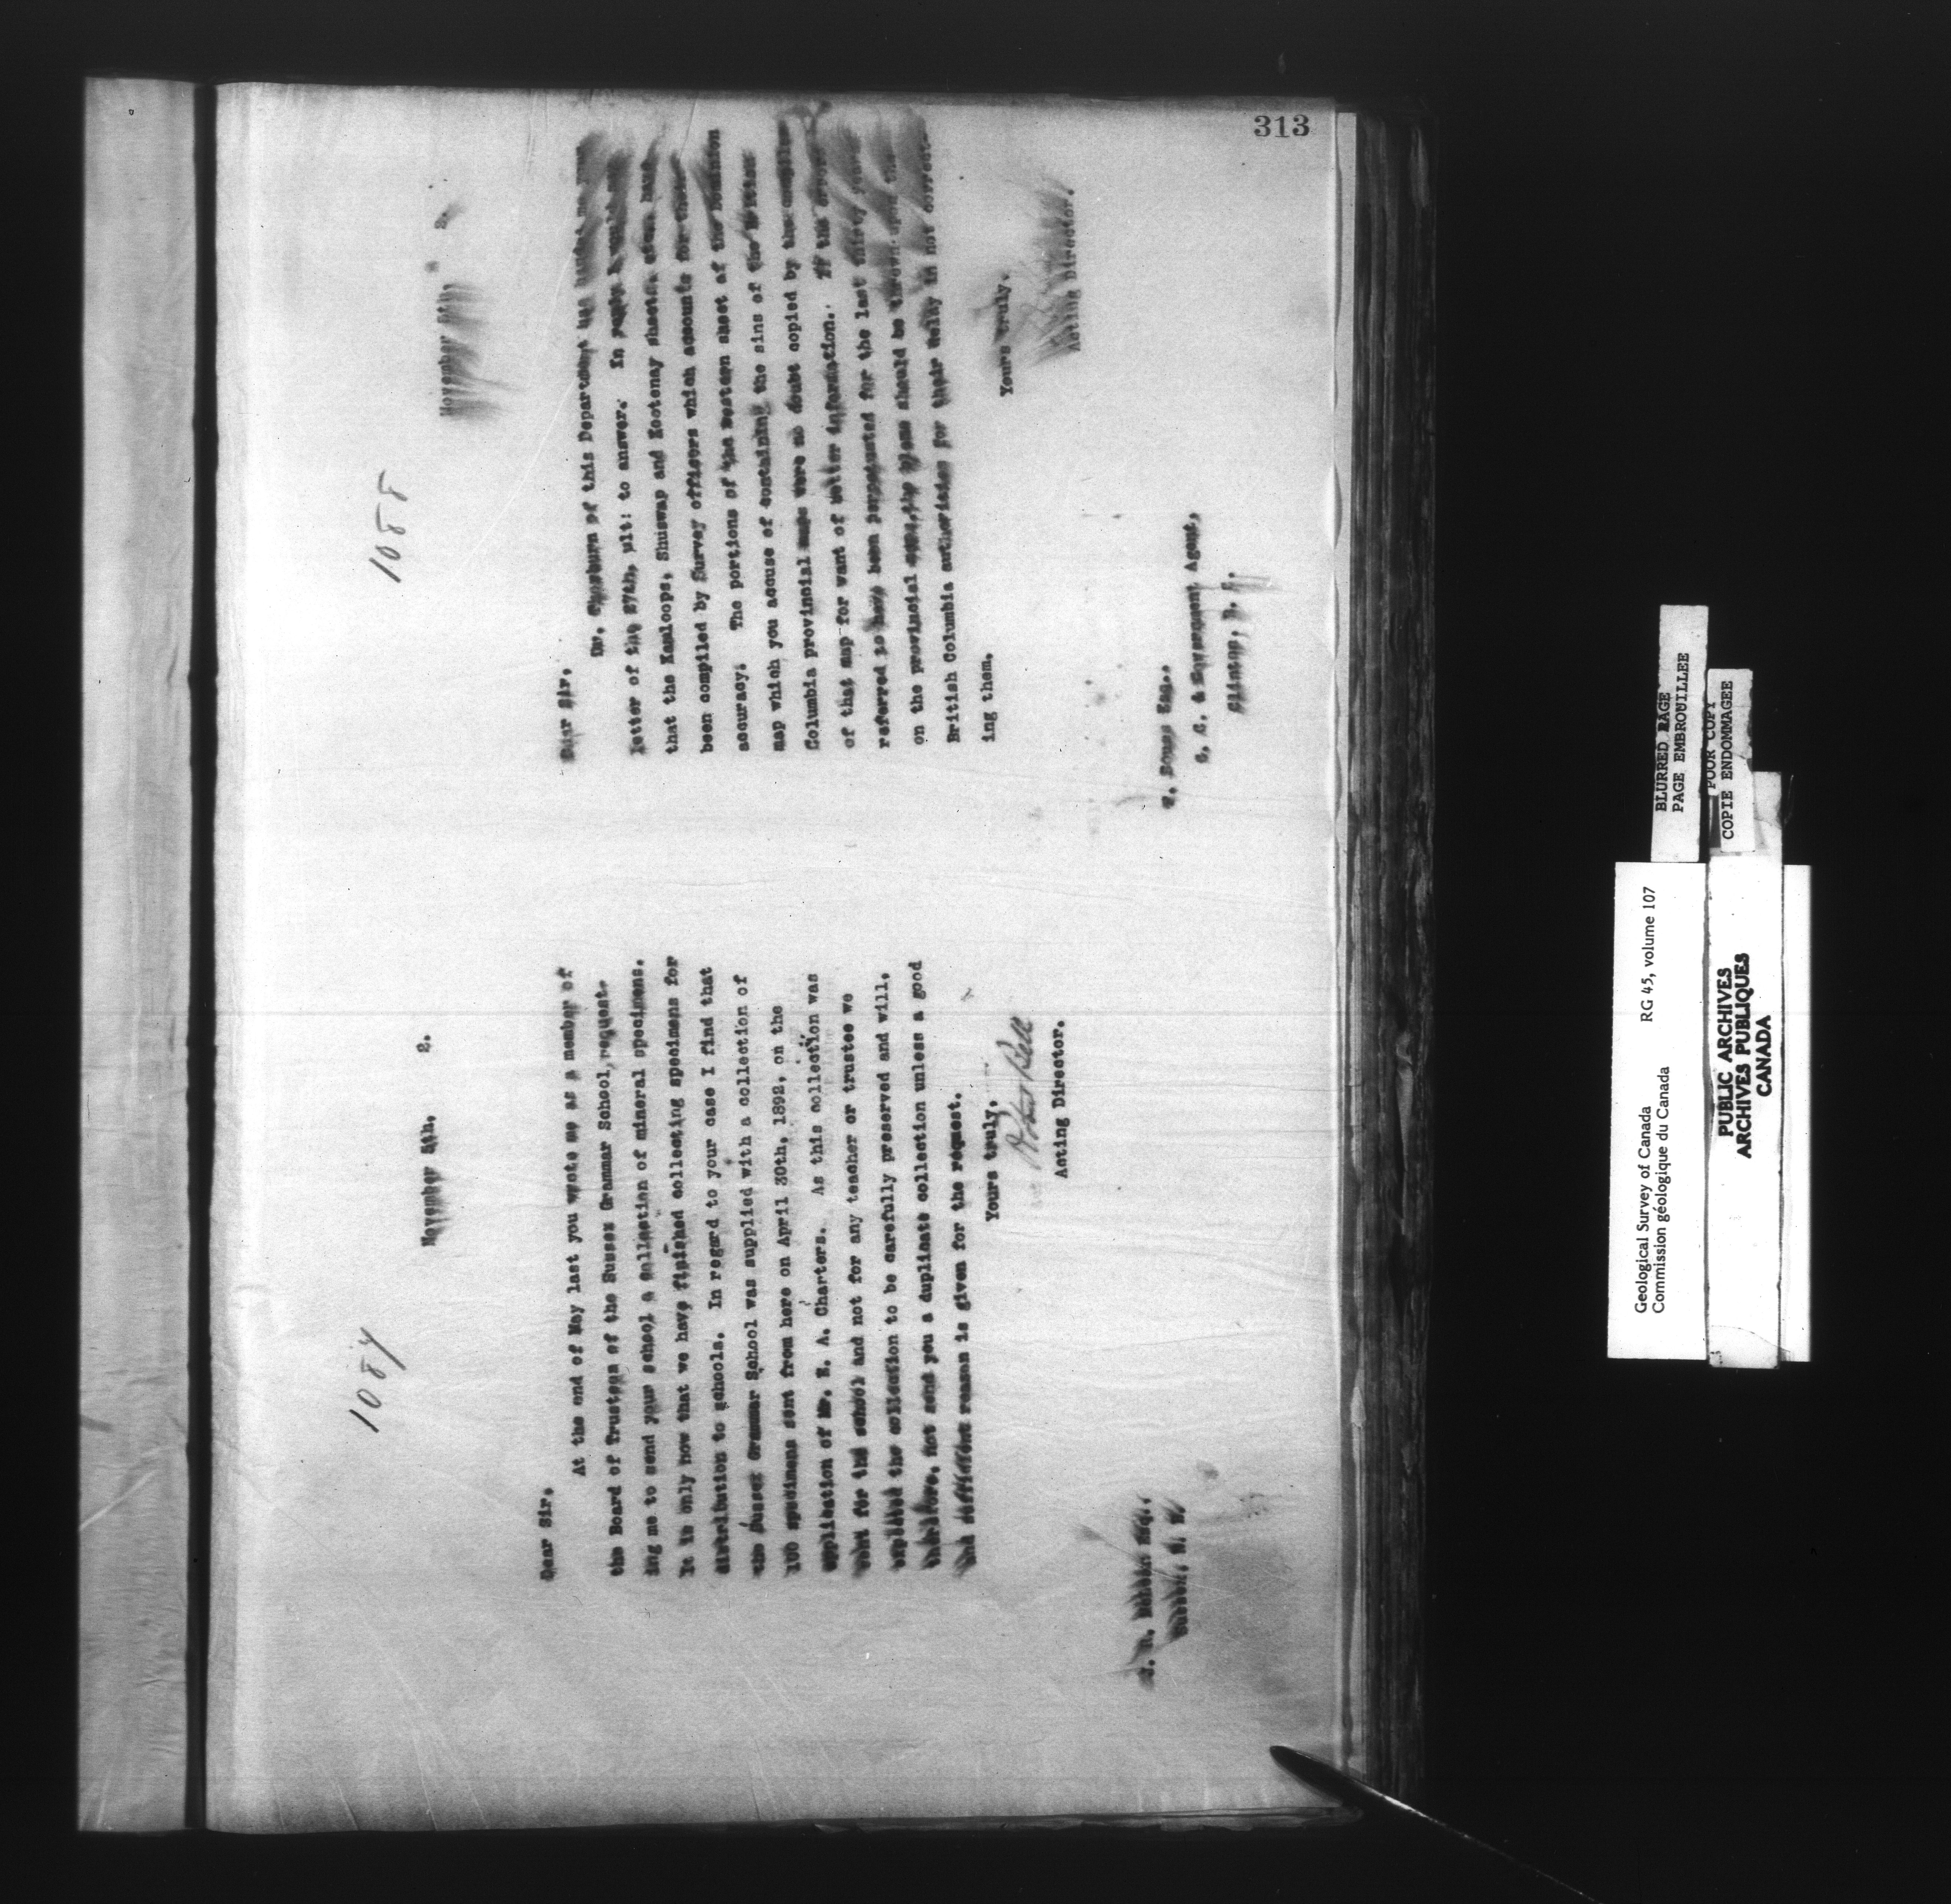 313
1087
November 5th. 2.
Dear Sir.
At the end of May last you wrote me as a member of
the Board of Trustees of the Sussex Grammar School, request-
ing me to send your school a collection of mineral specimens.
It is only now that we have finished collecting specimens for
distribution to schools. In regard to your case I find that
the Sussex Grammar School was supplied with a collection of
100 specimens sent from here on April 30th, 1892, on the
application of Mr. E. A. Charters. As this collection was
for the school and not for any teacher or trustee we
the collection to be carefully preserved and will,
therefore, not send you a duplicate collection unless a good
and sufficient reason is given for the request.
Yours truly,
Robert Bell
Acting Director.
Esq.
Sussex, N. B.
1088
November 5th, 2.
Dear Sir,
Dr. of this Department has handed me your
letter of the 27th, ult: to answer. In reply I would say
that the Kamloops, Shuswap and Kootenay sheets have
been compiled by Survey officers which accounts for their
accuracy. The portions of the western sheet of the Dominion
map which you accuse of containing the sins of the British
Columbia provincial maps were no doubt copied by the compiler
of that map for want of better information. If the errors
referred to have been perpetuated for the last thirty years
on the provincial the should be thrown upon the
British Columbia authorities for their delay in not correct-
ing them.
Yours truly.
Acting Director.
Esq..
G. C. & Government Agent,
Clinton, B. C.
BLURRED PAGE
PAGE EMBROUILLEE
POOR COPY
COPIE ENDOMMAGEE
Geological Survey of Canada RG 45, volume 107
Commission géologique du Canada
PUBLIC ARCHIVES
ARCHIVES PUBLIQUES
CANADA